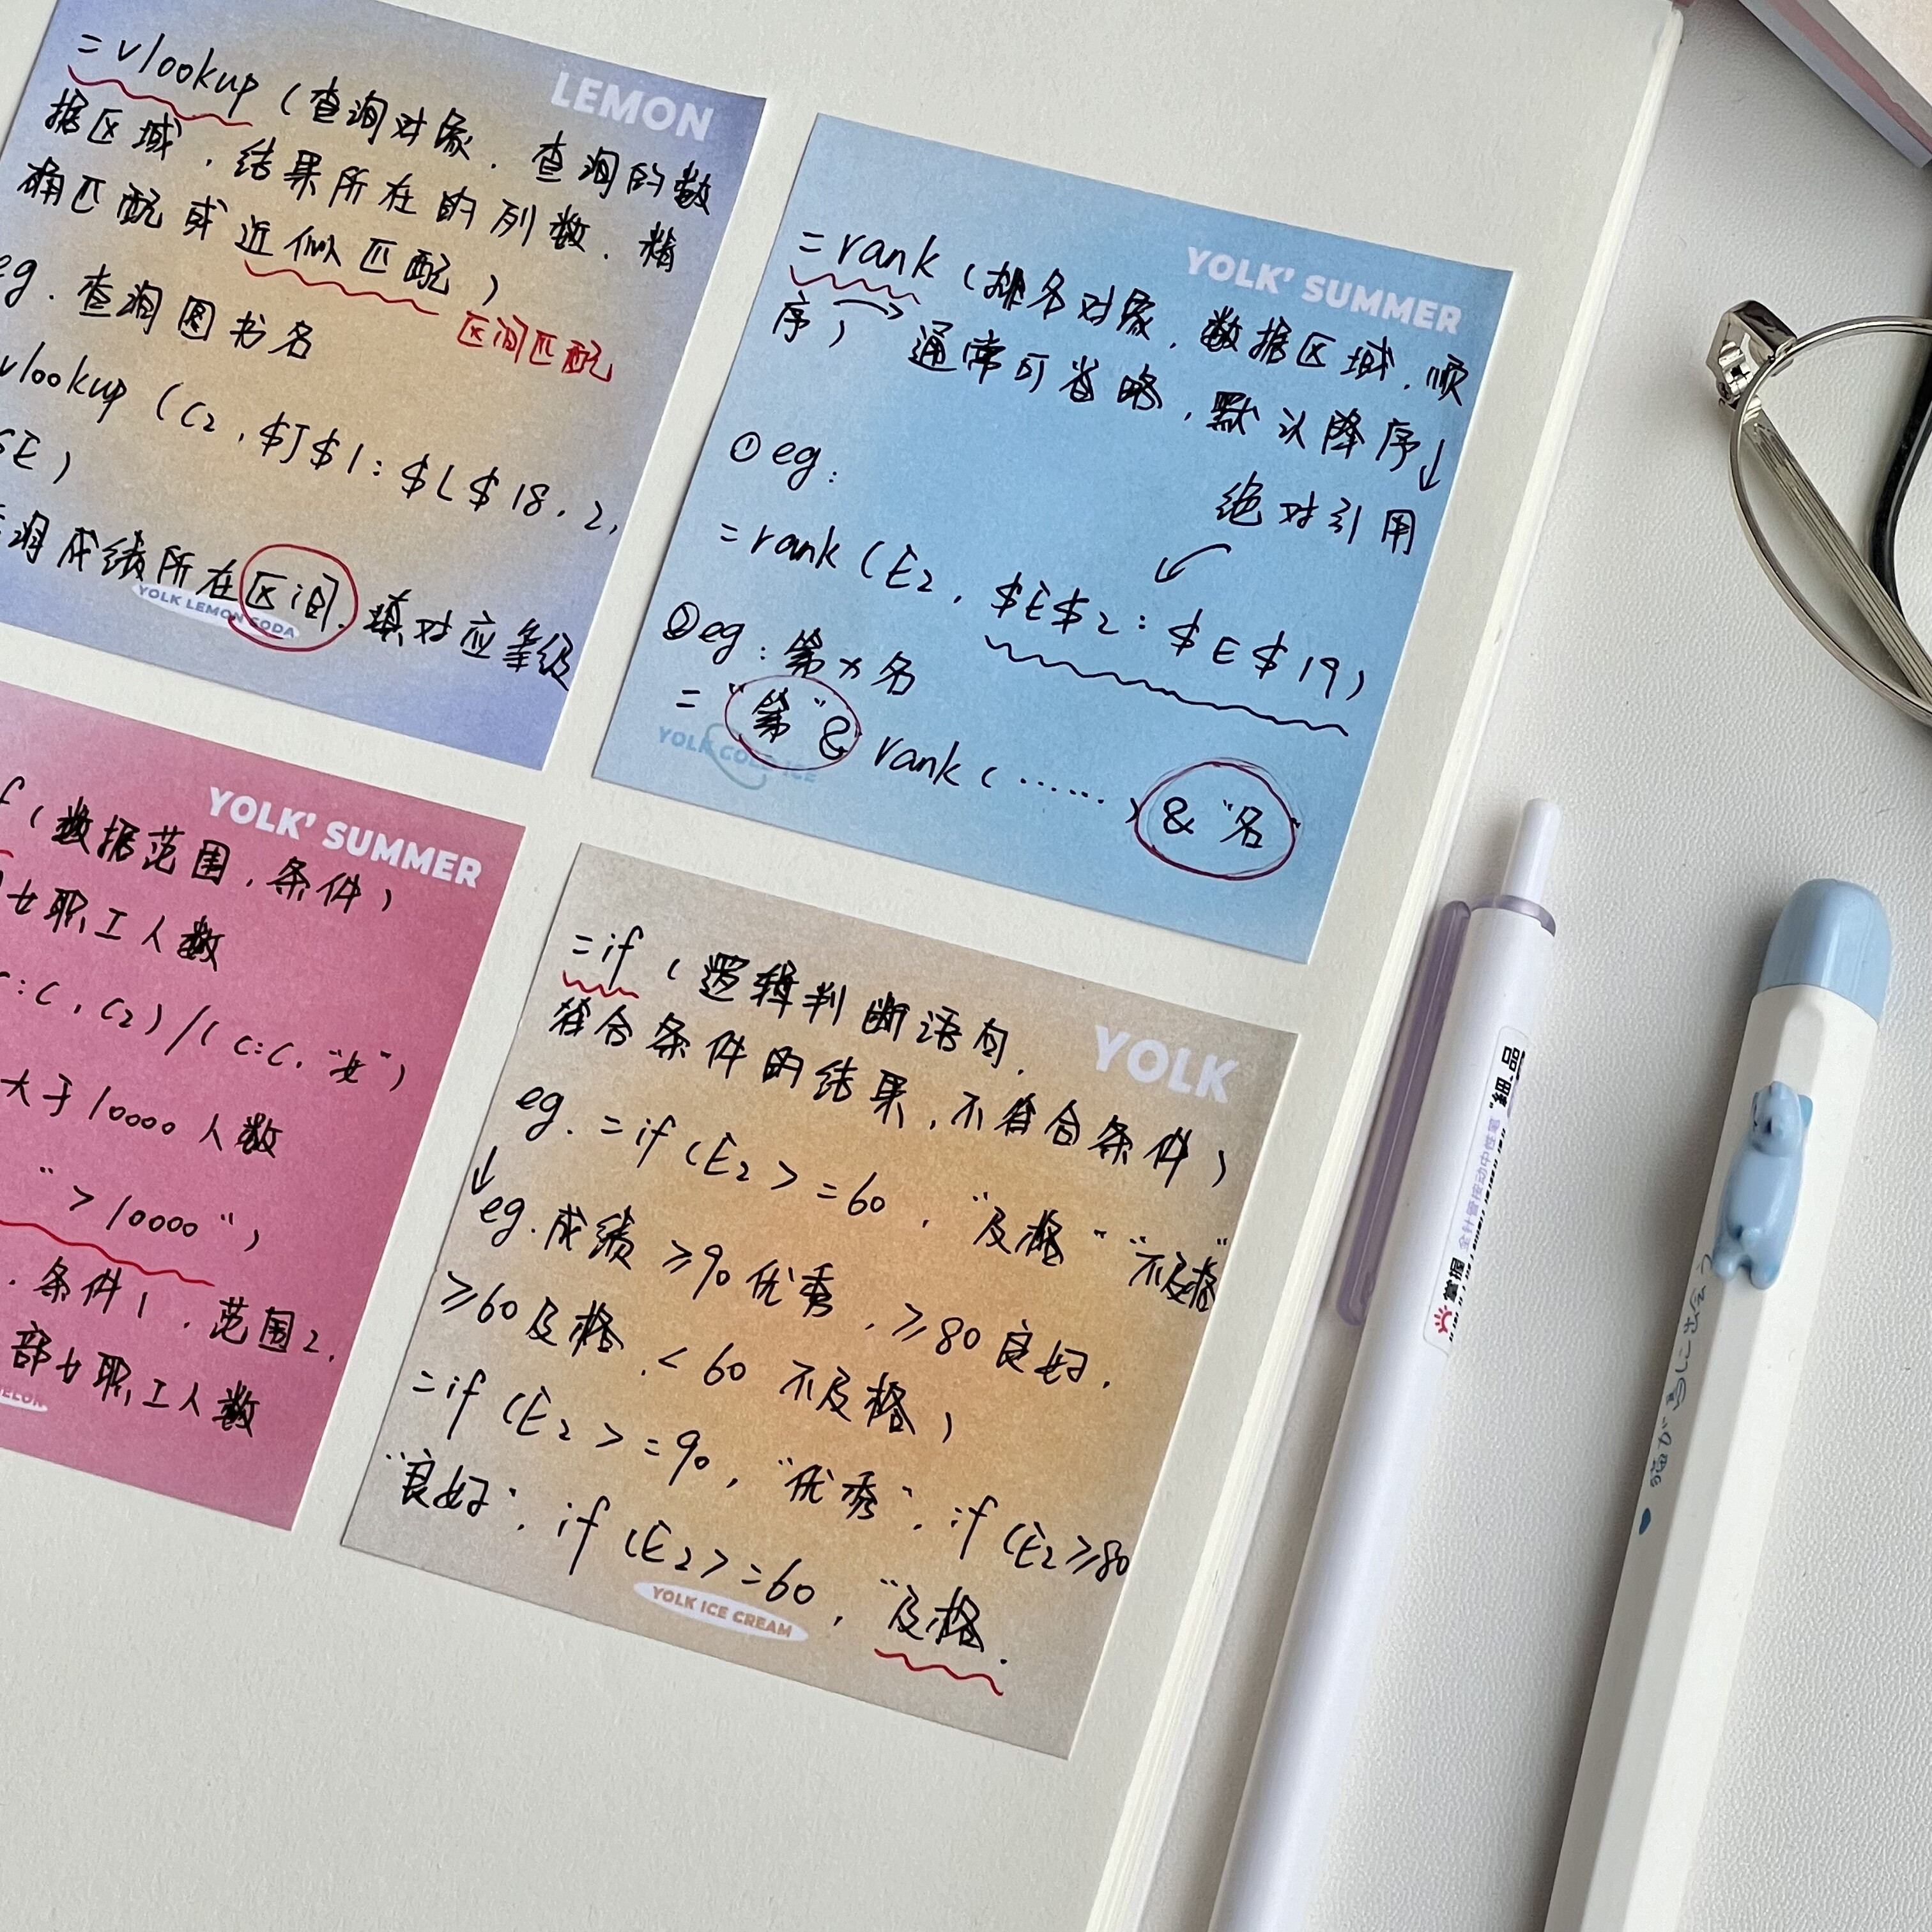 LEMON
=vlookup（查询对象，查询的数
据区域，结果所在的列数，精
确匹配或近似匹配）
区间匹配
eg. 查询图书名
vlookup（C2，$J$1:$L$18，2，
SE）
询成绩所在区间，填对应等级
YOLK LEMON SODA
YOLK' SUMMER
=rank（排名对象，数据区域，顺
序）→ 通常可省略，默认降序↓
①eg:
绝对引用
=rank（E2，$E$2:$E$19）
②eg: 第x名
="第"&rank（……）&"名"
YOLK COLD ICE
YOLK' SUMMER
f（数据范围，条件）
女职工人数
:C，C2）/（C:C，"女"）
大于10000人数
">10000"）
，条件1，范围2，
部女职工人数
YOLK
=if（逻辑判断语句，
符合条件的结果，不符合条件）
eg. =if（E2>=60，"及格" "不及格"
↓
eg. 成绩≥90优秀，≥80良好，
≥60及格，<60 不及格）
=if（E2>=90，"优秀"，if（E2≥80
"良好"，if（E2>=60，"及格.
YOLK ICE CREAM
掌握
全针管按动中性笔